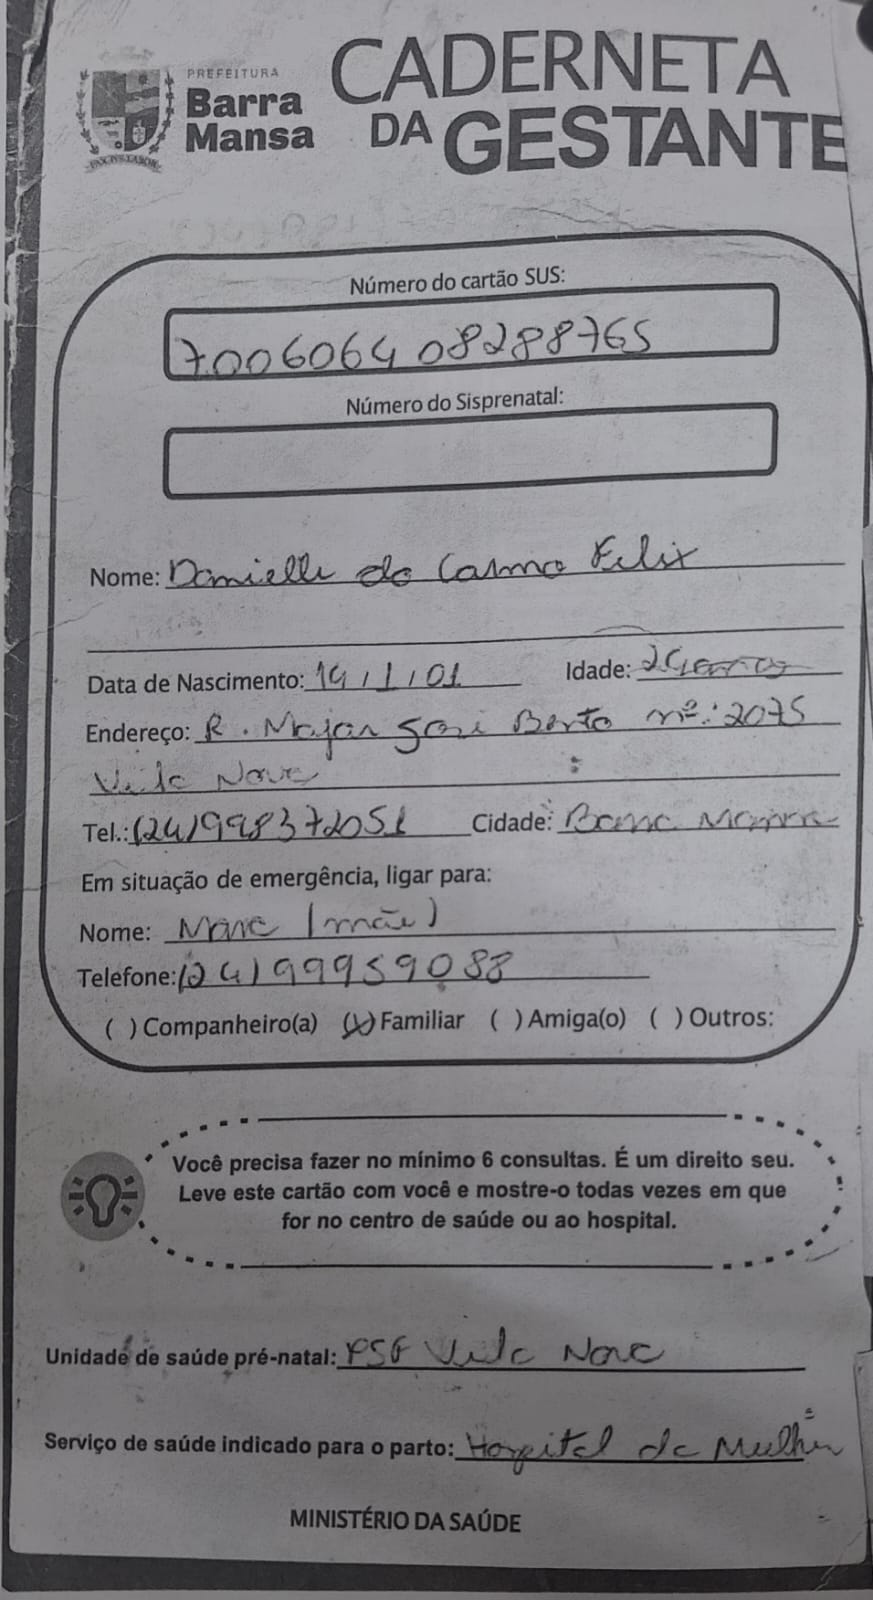 PREFEITURA
Barra
Mansa
PAX IN LABOR
CADERNETA
DA GESTANTE
Número do cartão SUS:
700606408288765
Número do Sisprenatal:
Nome: Danielle do Carmo Felix
Data de Nascimento: 19/1/01 Idade: 24 anos
Endereço: R. Major José Bento nº: 2075
Vila Nova
Tel.: (24) 998372051 Cidade: Barra Mansa
Em situação de emergência, ligar para:
Nome: (mãe)
Telefone: (24) 999959088
( ) Companheiro(a) (x) Familiar ( ) Amiga(o) ( ) Outros:
Você precisa fazer no mínimo 6 consultas. É um direito seu.
Leve este cartão com você e mostre-o todas vezes em que
for no centro de saúde ou ao hospital.
Unidade de saúde pré-natal: PSF Vila Nova
Serviço de saúde indicado para o parto: Hospital da Mulher
MINISTÉRIO DA SAÚDE